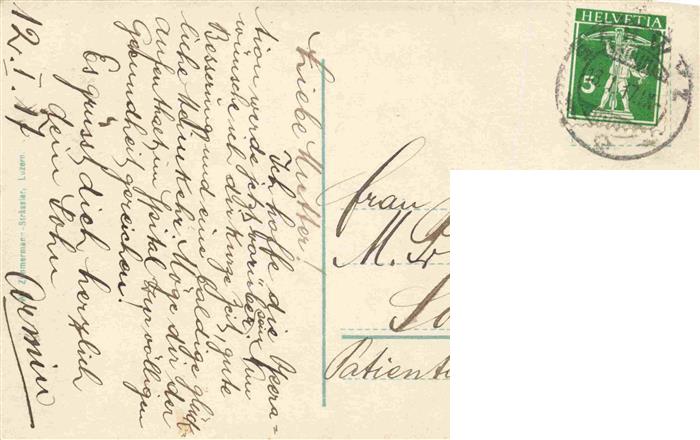 12. I. 17
Liebe Mutter!
Ich hoffe die Opera=
tion werde jetzt vorüber sein. Nun
wünsche ich dir kurze Zeit, gute
Besserung und eine baldige glück=
liche Heimkehr. Möge dir der
Aufenthalt im Spital zur völligen
Gesundheit gereichen!
Es grüsst dich herzlich
dein Sohn
Armin
Zimmermann-Strässler, Luzern.
HELVETIA
5
Frau
M.
Patient